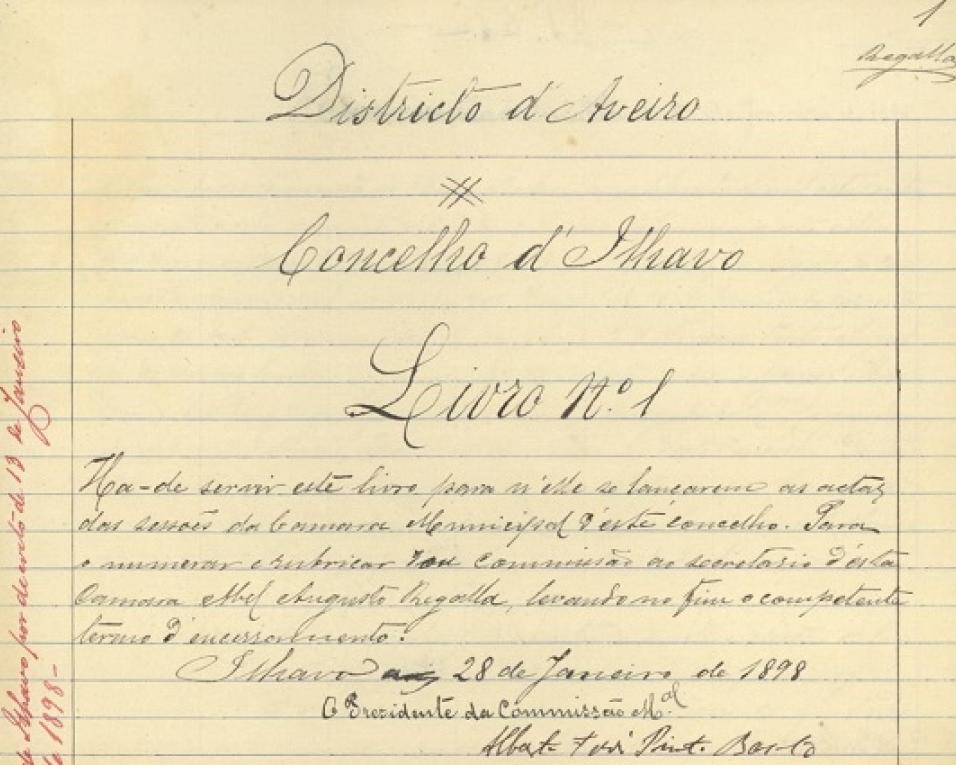 1
Regalla
Districto d'Aveiro
Concelho d'Ilhavo
Livro N.º 1
Ha-de servir este livro para n'elle se lancarem as actas
das sessões da Camara Municipal d'este concelho. Para
o numerar e rubricar dou commissão ao secretario d'esta
Camara Abel Augusto Regalla, levando no fim o competente
termo d'encerramento.
Ilhavo 28 de Janeiro de 1898
O Prezidente da Commissão M.al
Alberto Pinto Basto
de Ilhavo por decreto de 13 de Janeiro
de 1898-